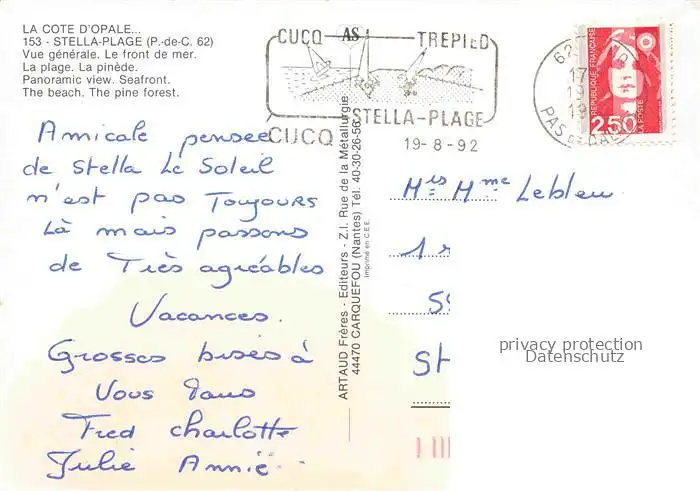 LA COTE D'OPALE...
153 - STELLA-PLAGE (P.-de-C. 62)
Vue générale. Le front de mer.
La plage. La pinède.
Panoramic view. Seafront.
The beach. The pine forest.
Amicale pensée
de Stella Le Soleil
n'est pas Toujours
Là mais passons
de Très agréables
Vacances.
Grosses bises à
Vous Tous
Fred charlotte
Julie Annie
ARTAUD Frères - Editeurs - Z.I. Rue de la Métallurgie
44470 CARQUEFOU (Nantes) Tél. 40-30-26-56
Imprimé en C.E.E.
AS
CUCQ TREPIED
STELLA-PLAGE
CUCQ 19-8-92
62
17
19
PAS DE CALAIS
REPUBLIQUE FRANÇAISE
LA POSTE
2,50
Mrs Mme Lebleu
1
59
St
privacy protection
Datenschutz